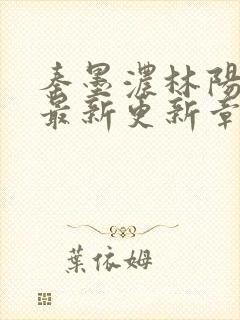 秦墨濃林陽
最新更新章
葉依姆